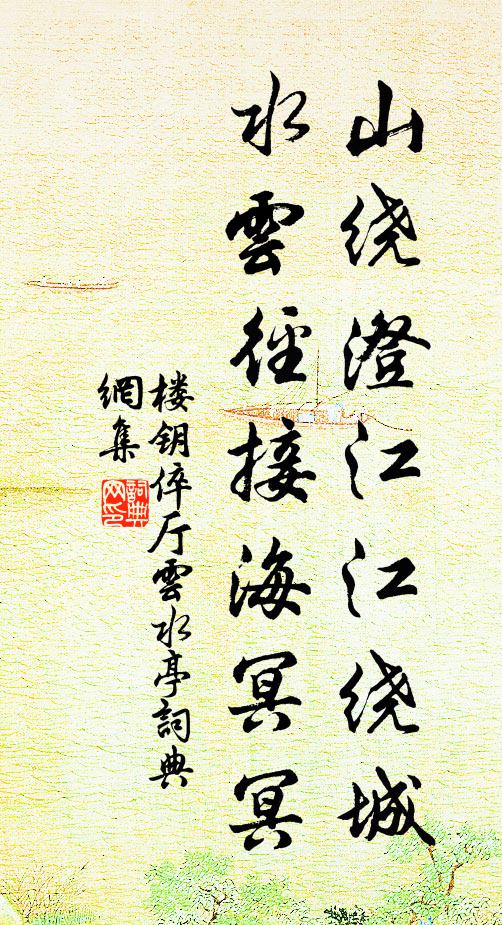 山绕澄江江绕城
水雲径接海冥冥
楼钥倅厅雲水亭詞典
網集
詞典网印